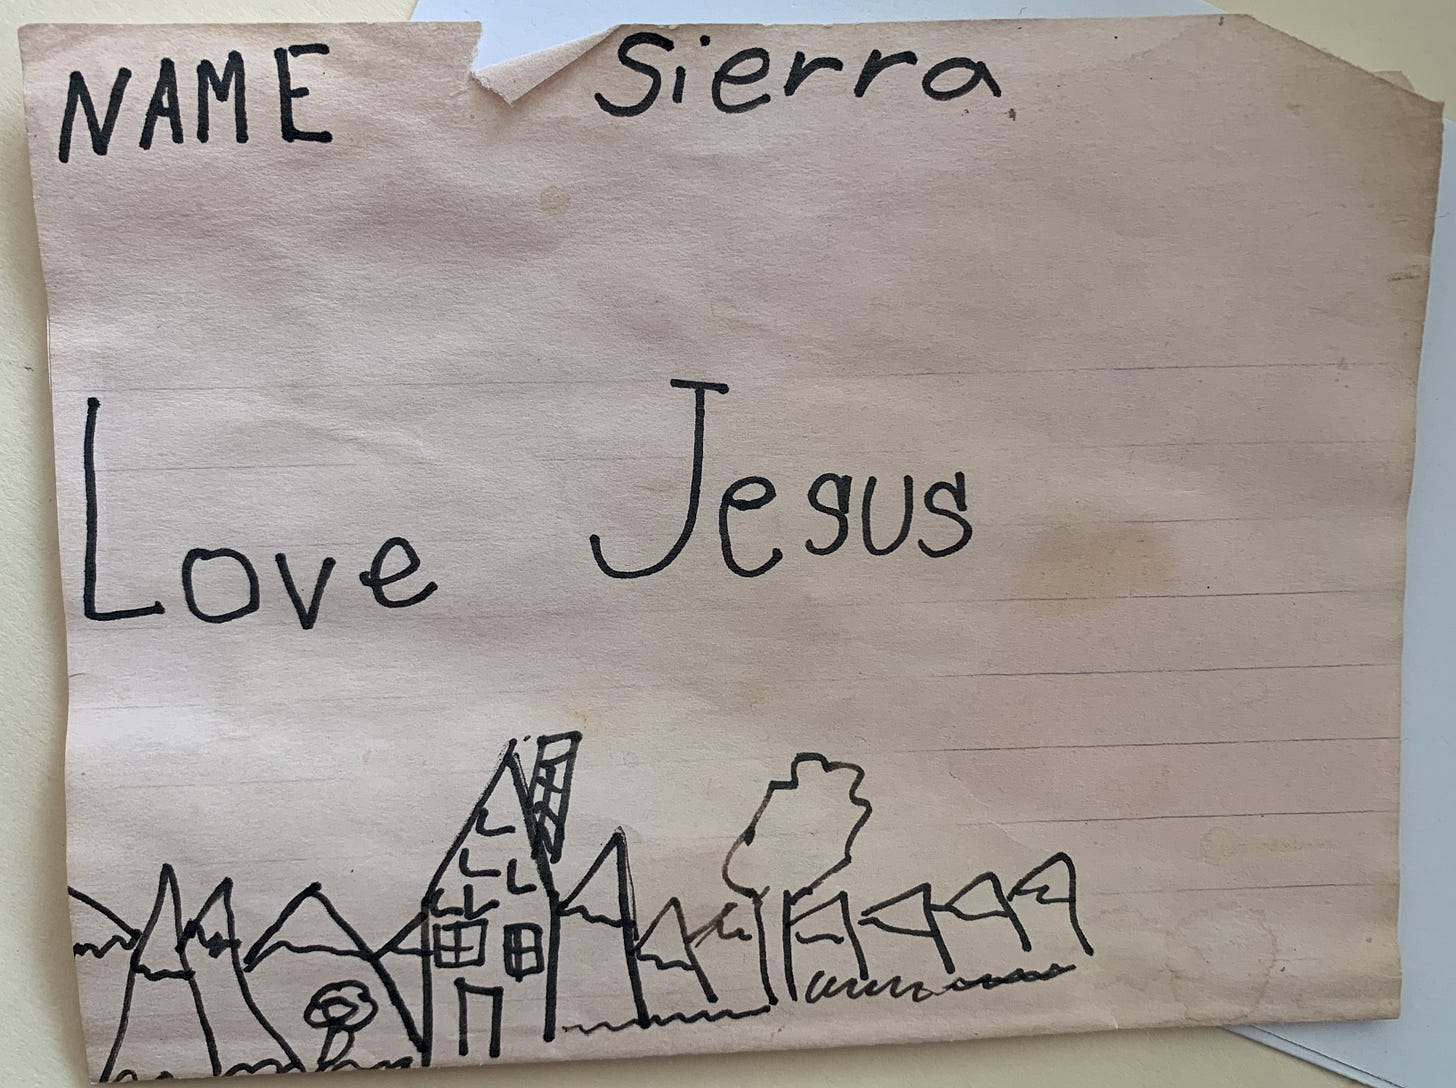 NAME Sierra
Love Jesus